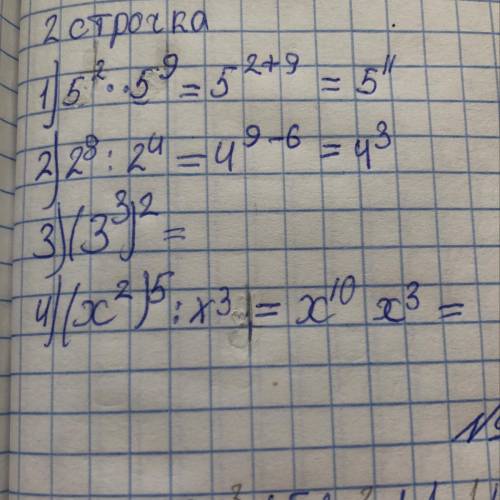 2 строчка
1) 5² · 5⁹ = 5²⁺⁹ = 5¹¹
2) 2⁸ : 2⁴ = 4⁹⁻⁶ = 4³
3) (3³)² =
4) (x²)⁵ : x³ = x¹⁰ x³ =